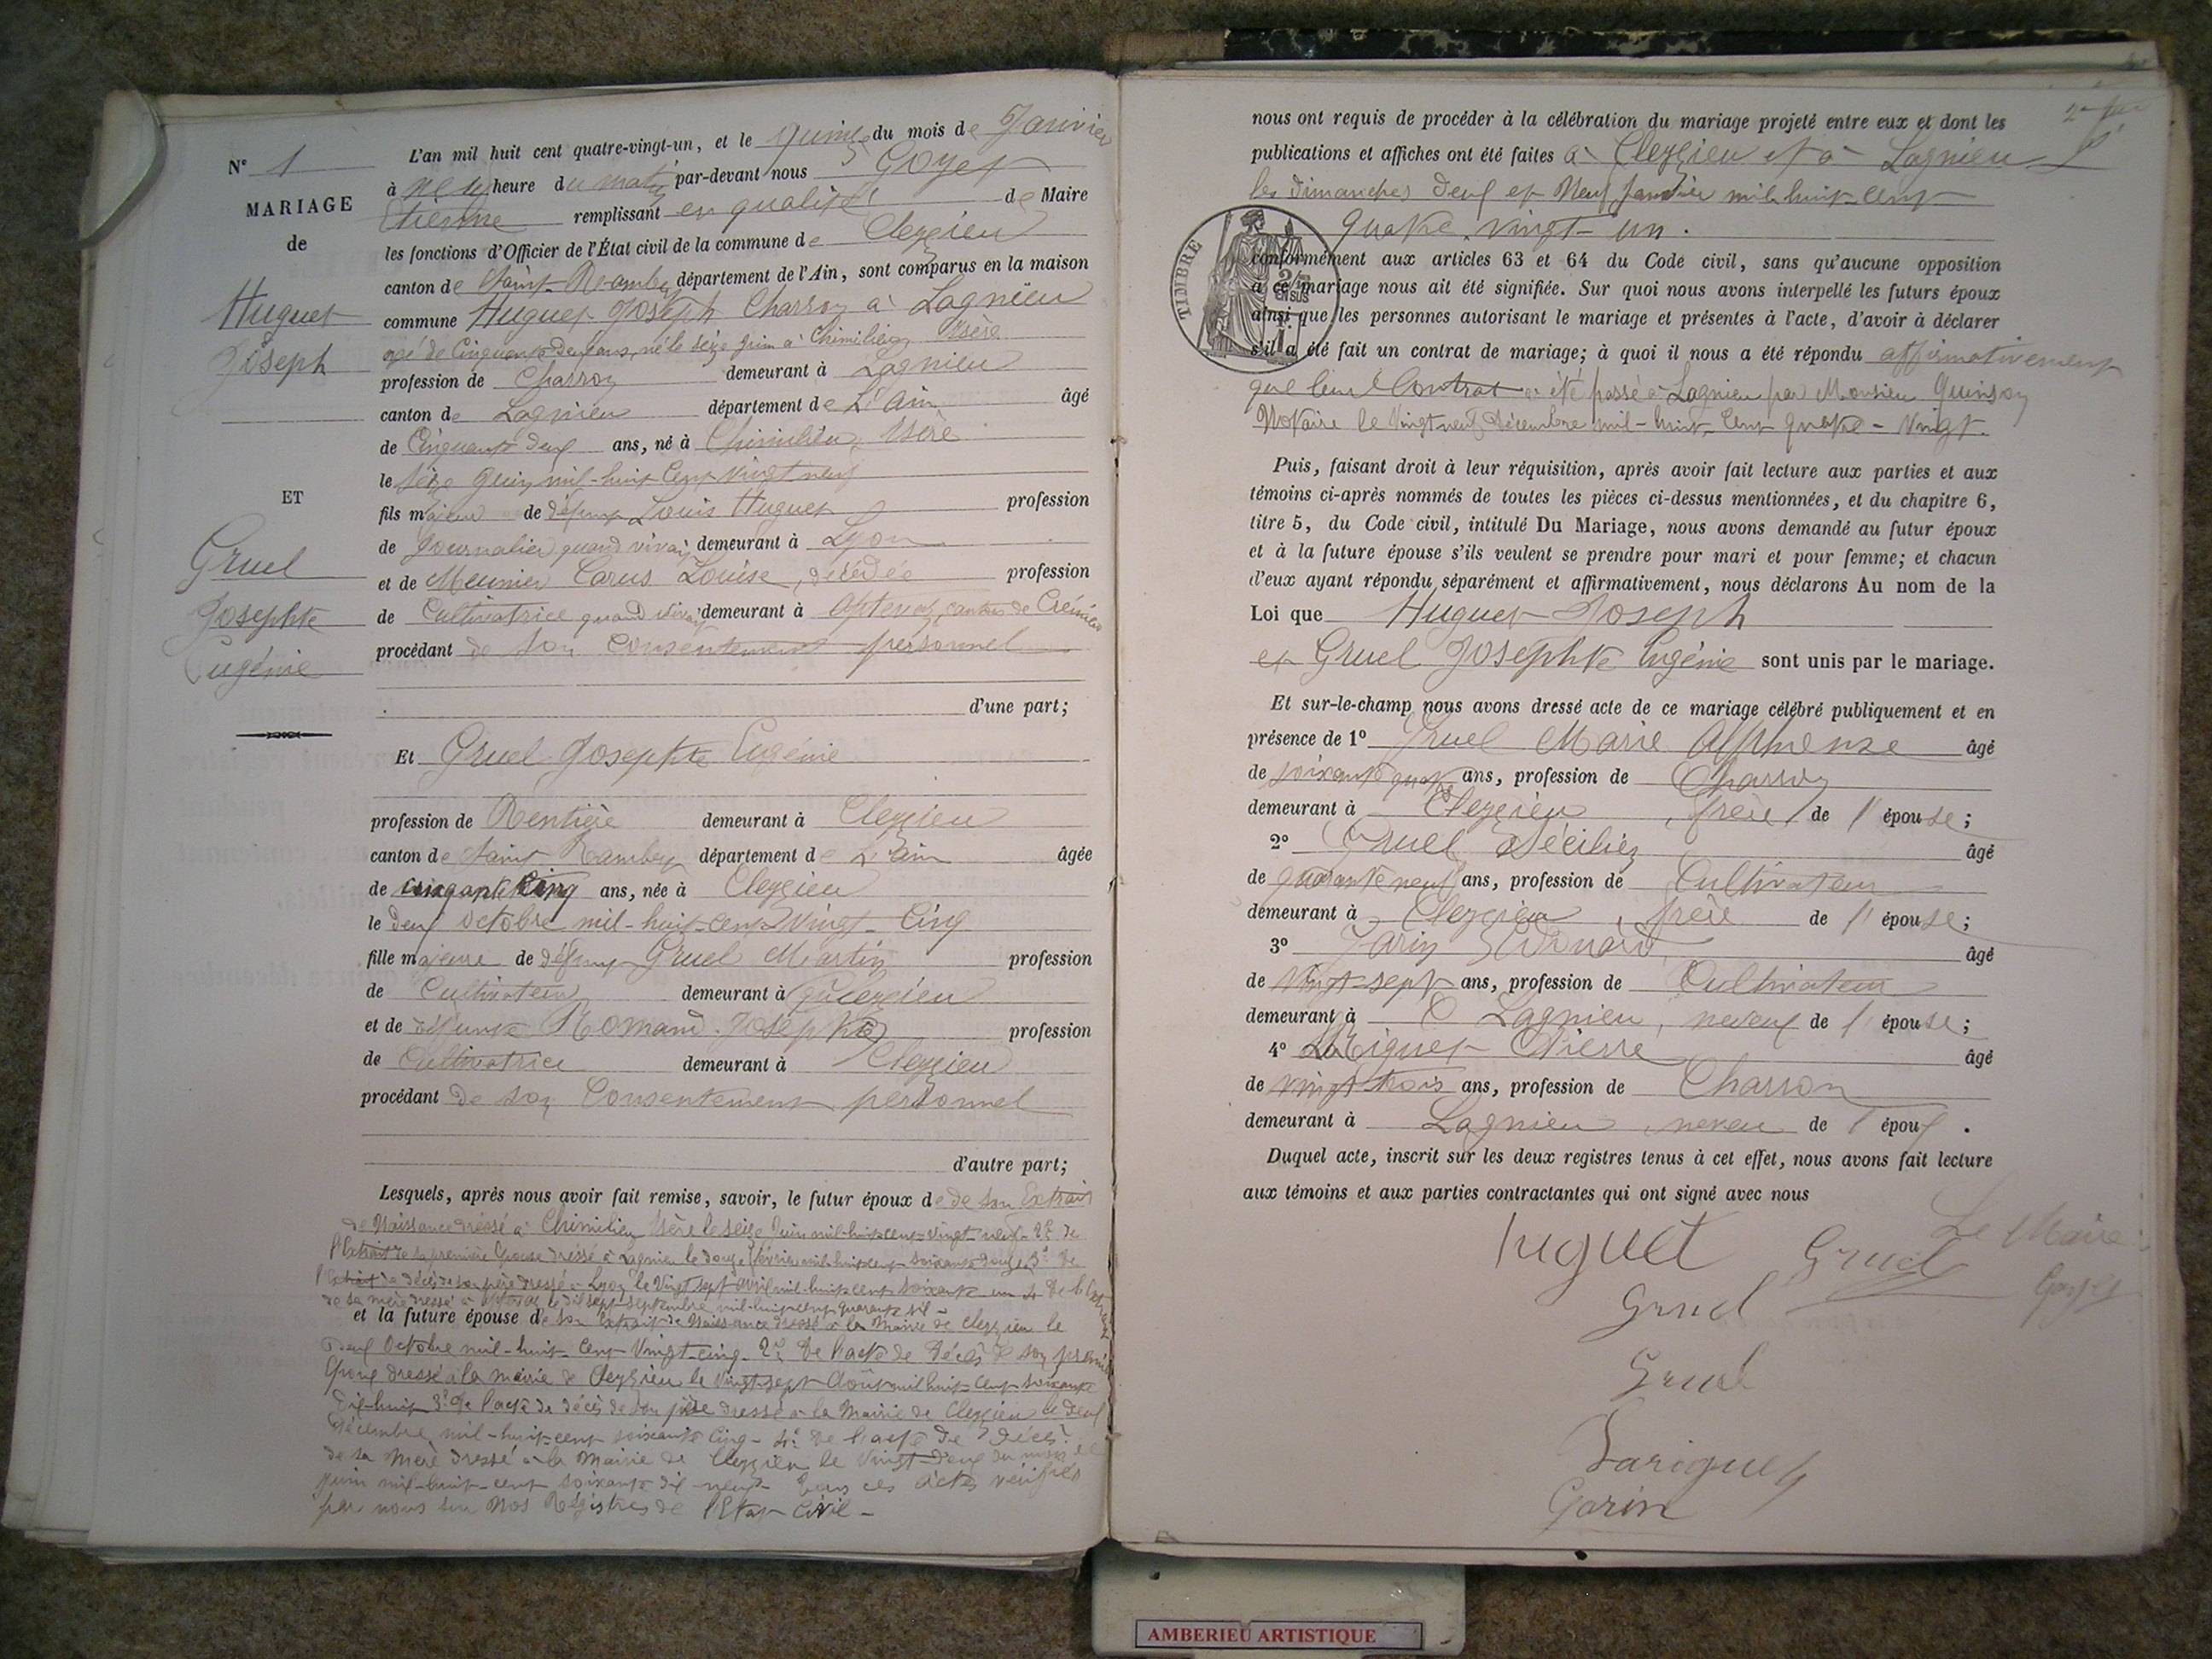 N° 1
MARIAGE
de
Huguet
Joseph
ET
Gruel
Josephte
Eugénie
L'an mil huit cent quatre-vingt-un, et le quinze du mois de Janvier
à neuf heure du matin par-devant nous Goyet
Etienne remplissant en qualité de Maire
les fonctions d'Officier de l'État civil de la commune de Cleyzieu
canton de Saint-Rambert département de l'Ain, sont comparus en la maison
commune Huguet Joseph Charron à Lagnieu
agé de Cinquante Deux ans, né le seize Juin à Chimilien, Isère
profession de Charron demeurant à Lagnieu
canton de Lagnieu département de L'Ain âgé
de Cinquante deux ans, né à Chimilien, Isère
le Seize Juin mil-huit Cent vingt neuf
fils majeur de défunt Louis Huguet profession
de Journalier quand vivait demeurant à Lyon
et de Meunier Carus Louise, décédée profession
de Cultivatrice quand vivait demeurant à Optevoz, canton de Crémieu
procédant de son Consentement personnel
d'une part;
Et Gruel Josephte Eugénie
profession de Rentière demeurant à Cleyzieu
canton de Saint-Rambert département de L'Ain âgée
de cinquante Cinq ans, née à Cleyzieu
le deux octobre mil-huit-cent-vingt-Cinq
fille majeure de défunt Gruel Martin profession
de Cultivateur demeurant à Cleyzieu
et de défunte Romand Josephte profession
de Cultivatrice demeurant à Cleyzieu
procédant de son Consentement personnel
d'autre part;
Lesquels, après nous avoir fait remise, savoir, le futur époux de de son Extrait
de Naissance dréssé à Chimilien, Isère le seize Juin mil-huit-cent-vingt-neuf- 2° de
l'Extrait de sa première épouse dréssé à Lagnieu le douze février mil huit cent soixante douze, 3° de
l'Extrait de décès de son père dressé à Lyon le Vingt sept avril mil-huit-cent soixante un 4° de l'Extrait
de sa mère dressé à Optevoz le dix sept septembre mil-huit-cent quarante six -
et la future épouse de son Extrait de Naissance dressé à la Mairie de Cleyzieu le
Deux Octobre mil-huit-Cent-Vingt-cinq- 2° De l'acte de décès de son premier
époux dressé à la mairie de Cleyzieu le vingt-sept Août mil huit-cent-soixante
Dix-huit 3° de l'acte de décès de son père dressé à la Mairie de Cleyzieu le deux
Décembre mil-huit-cent soixante Cinq- 4° de l'acte de décès
de sa Mère dressé à la Mairie de Cleyzieu le vingt-deux du mois de
Juin mil-huit-cent soixante dix neuf- Tous ces actes vérifiés
par nous sur Nos Régistres de l'Etat Civil -
nous ont requis de procéder à la célébration du mariage projeté entre eux et dont les
publications et affiches ont été faites à Cleyzieu et à Lagnieu
les dimanches deux et Neuf janvier mil huit-Cent
quatre-vingt-un.
TIMBRE
conformément aux articles 63 et 64 du Code civil, sans qu'aucune opposition
à ce mariage nous ait été signifiée. Sur quoi nous avons interpellé les futurs époux
ainsi que les personnes autorisant le mariage et présentes à l'acte, d'avoir à déclarer
s'il a été fait un contrat de mariage; à quoi il nous a été répondu affirmativement
que leur Contrat a été passé à Lagnieu par Monsieur Quinson
Notaire le Vingt neuf Décembre mil-huit-Cent quatre-Vingt.
Puis, faisant droit à leur réquisition, après avoir fait lecture aux parties et aux
témoins ci-après nommés de toutes les pièces ci-dessus mentionnées, et du chapitre 6,
titre 5, du Code civil, intitulé Du Mariage, nous avons demandé au futur époux
et à la future épouse s'ils veulent se prendre pour mari et pour femme; et chacun
d'eux ayant répondu séparément et affirmativement, nous déclarons Au nom de la
Loi que Huguet Joseph
et Gruel Josephte Eugénie sont unis par le mariage.
Et sur-le-champ nous avons dressé acte de ce mariage célébré publiquement et en
présence de 1° Gruel Marie Alphonse âgé
de soixante quatre ans, profession de Charron
demeurant à Cleyzieu, frère de l'épouse;
2° Gruel Décilien âgé
de quarante neuf ans, profession de Cultivateur
demeurant à Cleyzieu, frère de l'épouse;
3° Garin âgé
de vingt-sept ans, profession de Cultivateur
demeurant à Lagnieu, neveux de l'épouse;
4° Larriguet Pierre âgé
de vingt trois ans, profession de Charron
demeurant à Lagnieu, neveu de l'époux.
Duquel acte, inscrit sur les deux registres tenus à cet effet, nous avons fait lecture
aux témoins et aux parties contractantes qui ont signé avec nous
Le Maire:
huguet Gruel
Goyet
Gruel
Gruel
Lariguet
Garin
AMBERIEU ARTISTIQUE